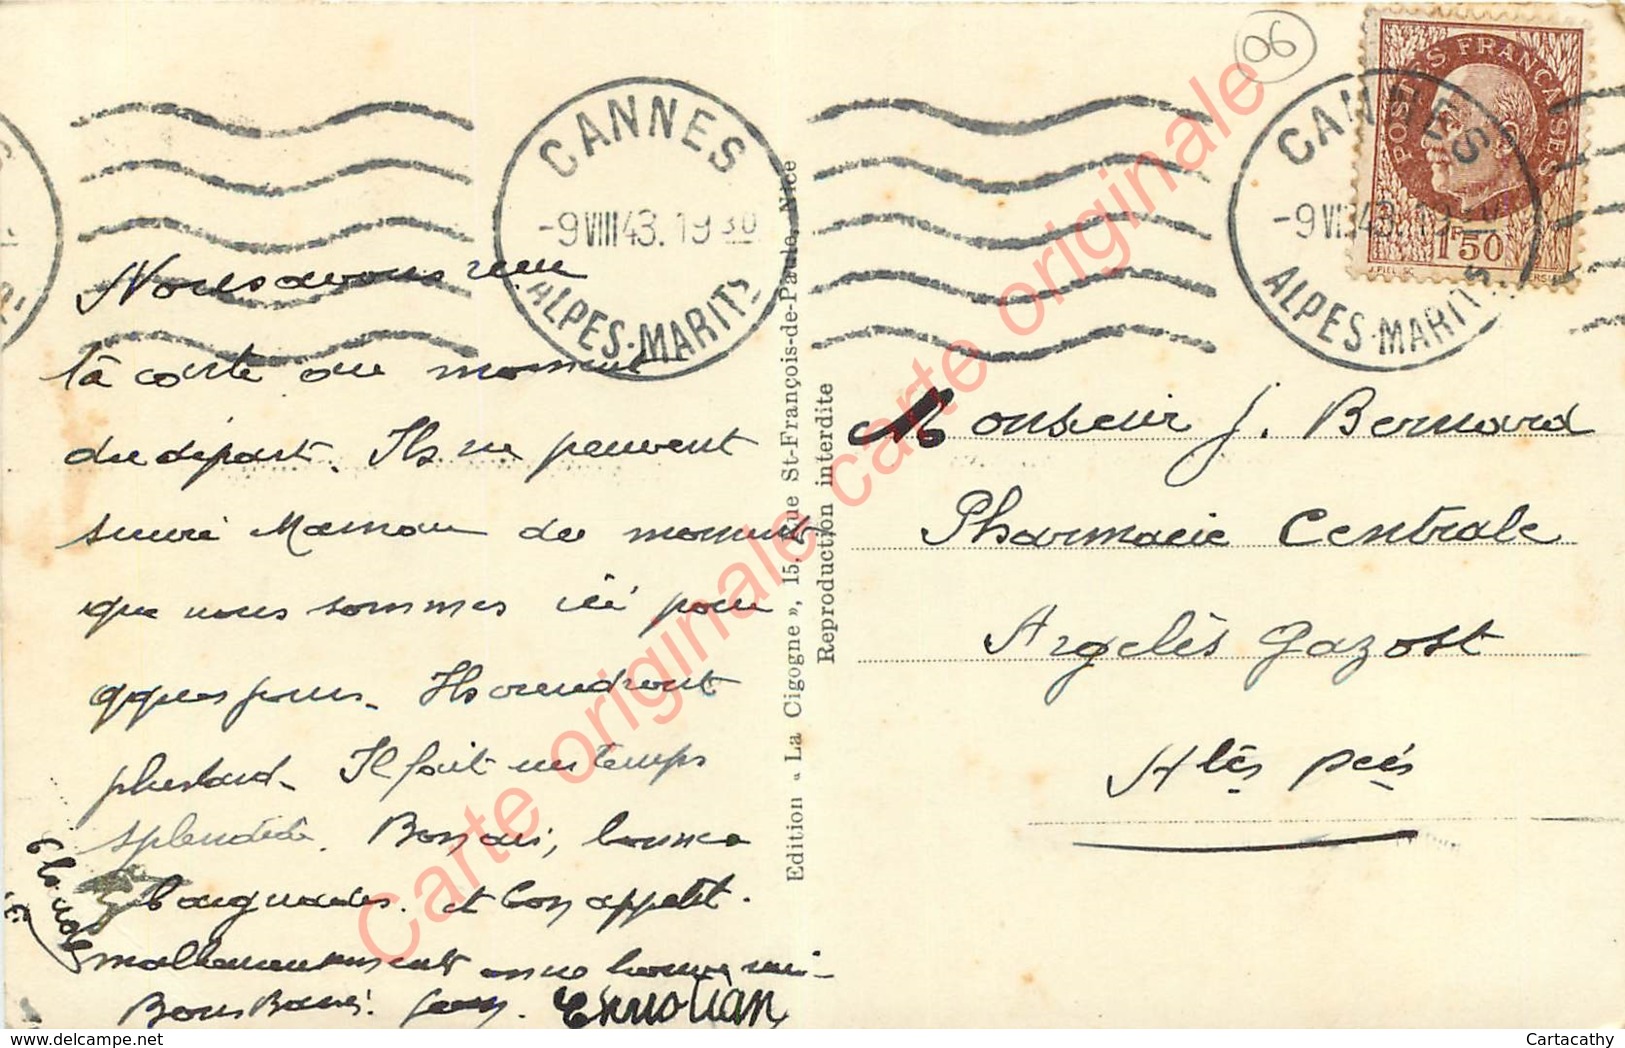 06
CANNES
-9 VIII 43. 19 30
ALPES-MARITS
CANNES
-9 VIII 43. 19 30
ALPES-MARITS
POSTES FRANÇAISES
1F50
Nous avons reçu
ta carte au moment
du départ. Ils ne peuvent
suivre Maman du moment
que nous sommes ici pour
qques jours. Ils viendront
plus tard. Il fait un temps
splendide. Bonsoir, bonne
baignades. et bon appétit.
malheureusement on ne
Bons Baisers. Jean. Christian
Monsieur J. Bernard
Pharmacie Centrale
Argelès Gazost
Htes Pées
Edition « La Cigogne », 15, Rue St-François-de-Paule, Nice
Reproduction interdite
Carte originale carte originale carte originale
Cartacathy